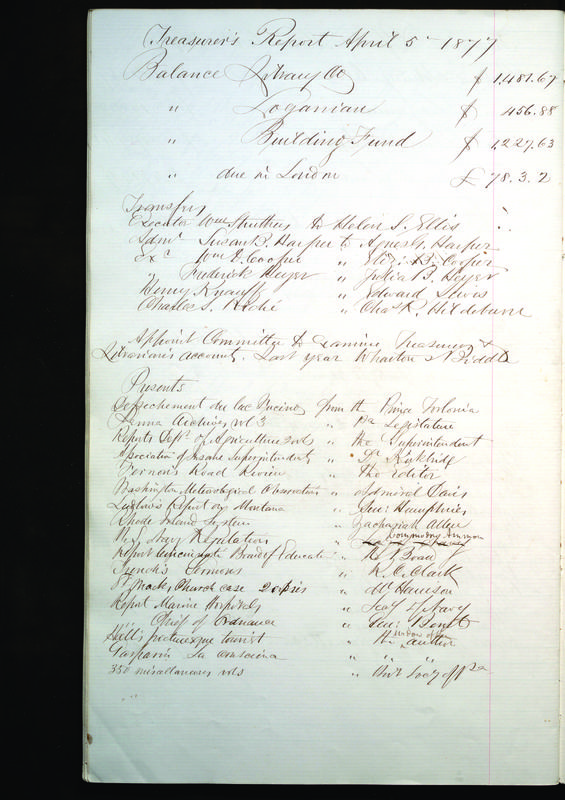 Treasurer's Report April 5th 1877
Balance Library Co $ 1,481.67
" Loganian $ 456.88
" Building Fund $ 1,227.63
" due in London £ 78.3.2
Transfers
Executor Wm Struthers to Helen S. Ellis
Admr Susan R. Harper to Agnes G. Harper
Exr Wm I. Cooper " Eliz. B. Cooper
" Frederick Heyer " Julia B. Heyer
Henry Knauff " Edward Lewis
Charles S. Riché " Chas R. Hildeburn
Appoint Committee to Examine Treasurer &
Librarian's accounts. Last year Wharton & Biddle
Presents
Dessechement du lac Fucino from the Prince Torlonia
Penna Archives, vol 3 " Pa Legislature
Reports Dept of Agriculture " the Superintendent
Association of Insane Superintendents " Dr Kirkbride
Vernon's Road Review " The Editor
Washington Meteorological Observations " Admiral Davis
Ludlow's Report on Montana " Genl Humphries
Rhode Island System " Zachariah Allen
N.S. Navy Regulations " Commodore Ammon
Report Cincinnati Board of Education " the Board
French's Sermons " R. C. Clark
St Marks Church case 2 copies " Mr Harrison
Report Marine Hospitals " Secy of Navy
" Chief of Ordnance " Genl Benet
Hill's picturesque tourist " the widow of the author
Gasparin La Conscience " " "
350 miscellaneous vols " Ant Socy of Pa